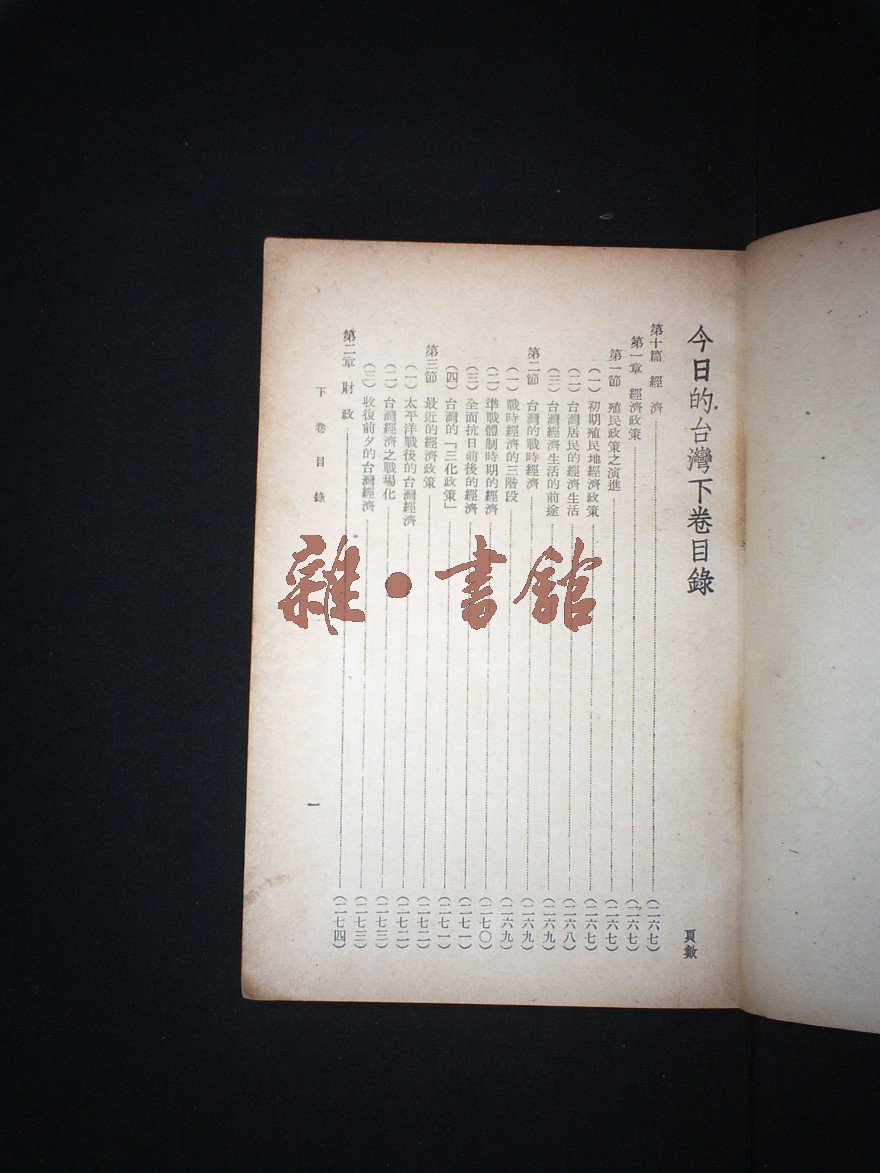 今日的台灣下卷目錄
頁數
第十篇 經濟……(二六七)
第一章 經濟政策……(二六七)
第一節 殖民政策之演進……(二六七)
(一)初期殖民地經濟政策……(二六七)
(二)台灣居民的經濟生活……(二六八)
(三)台灣經濟生活的前途……(二六九)
第二節 台灣的戰時經濟……(二六九)
(一)戰時經濟的三階段……(二六九)
(二)準戰體制時期的經濟……(二七〇)
(三)全面抗日前後的經濟……(二七一)
(四)台灣的「三化政策」……(二七一)
第三節 最近的經濟政策……(二七二)
(一)太平洋戰後的台灣經濟……(二七二)
(二)台灣經濟之戰場化……(二七三)
(三)收復前夕的台灣經濟……(二七三)
第二章 財政……(二七四)
下卷目錄
一
雜•書館